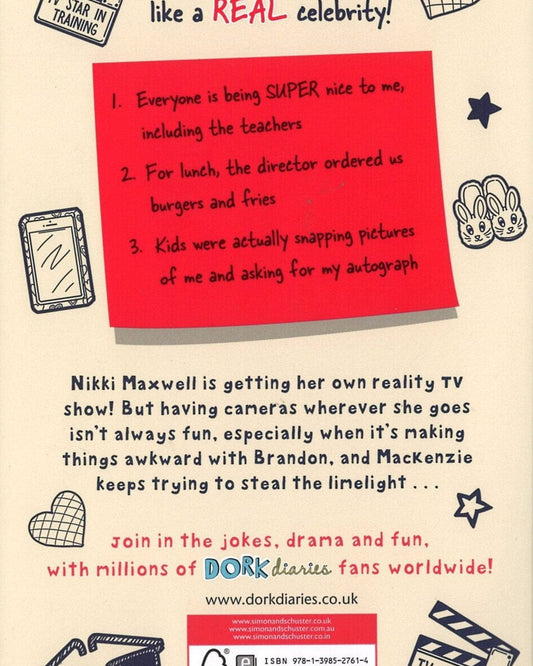 TV STAR IN
TRAINING
like a REAL celebrity!
1. Everyone is being SUPER nice to me,
including the teachers
2. For lunch, the director ordered us
burgers and fries
3. Kids were actually snapping pictures
of me and asking for my autograph
Nikki Maxwell is getting her own reality TV
show! But having cameras wherever she goes
isn't always fun, especially when it's making
things awkward with Brandon, and MacKenzie
keeps trying to steal the limelight . . .
Join in the jokes, drama and fun,
with millions of DORK diaries fans worldwide!
www.dorkdiaries.co.uk
www.simonandschuster.co.uk
www.simonandschuster.com.au
www.simonandschuster.co.in
ISBN 978-1-3985-2761-4